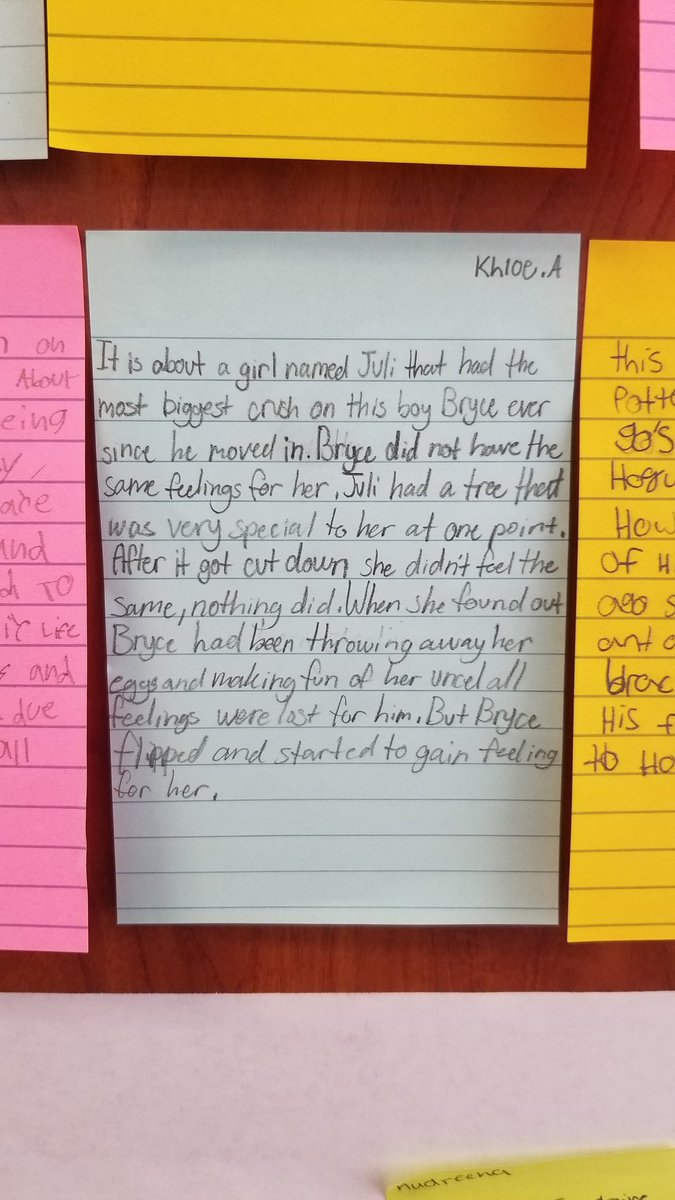 Khloe.A
It is about a girl named Juli that had the
most biggest crush on this boy Bryce ever
since he moved in. Bryce did not have the
same feelings for her. Juli had a tree that
was very special to her at one point.
After it got cut down she didn't feel the
same, nothing did. When she found out
Bryce had been throwing away her
eggs and making fun of her uncel all
feelings were lost for him. But Bryce
flipped and started to gain feeling
for her.
on
About
eing
are
and
TO
Life
and
due
all
this
Potte
90's
Hogw
How
OF Hi
ago s
ant
brac
His f
to Ho
nudreena